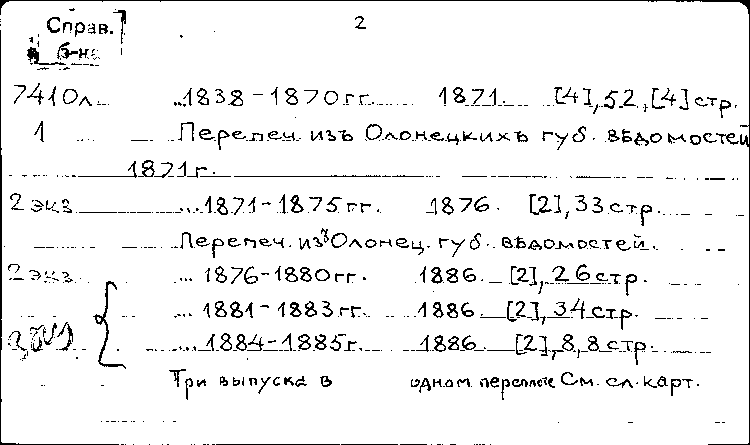 Справ. 2
б-ка
7410л ...1838-1870гг. 1871. [4], 52, [4] стр.
1 Перепеч. изъ Олонецкихъ губ. вѣдомостей
1871г.
2 экз ...1871-1875гг. 1876. [2], 33 стр.
Перепеч. изъ Олонец. губ. вѣдомостей.
2 экз ...1876-1880гг. 1886. [2], 26 стр.
...1881-1883гг. 1886. [2], 34 стр.
...1884-1885г. 1886. [2], 8, 8 стр.
Три выпуска в одном переплете См. сл. карт.